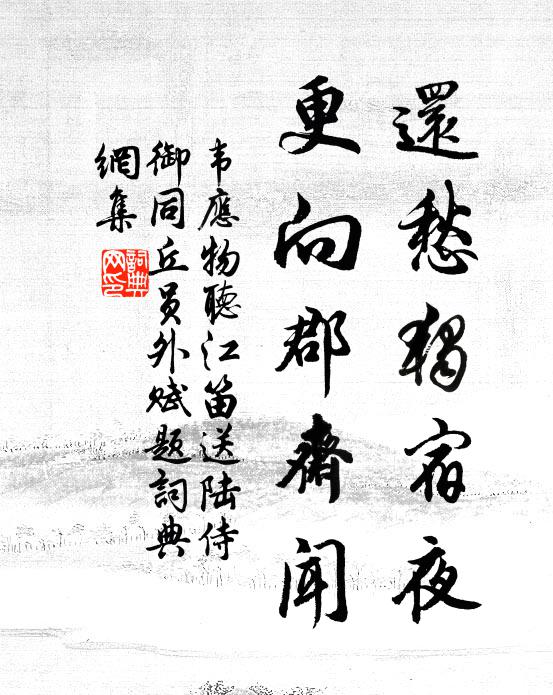 還愁獨宿夜
更向郡齋聞
韦應物聽江笛送陆侍
御同丘员外赋题詞典
網集
詞典
网印